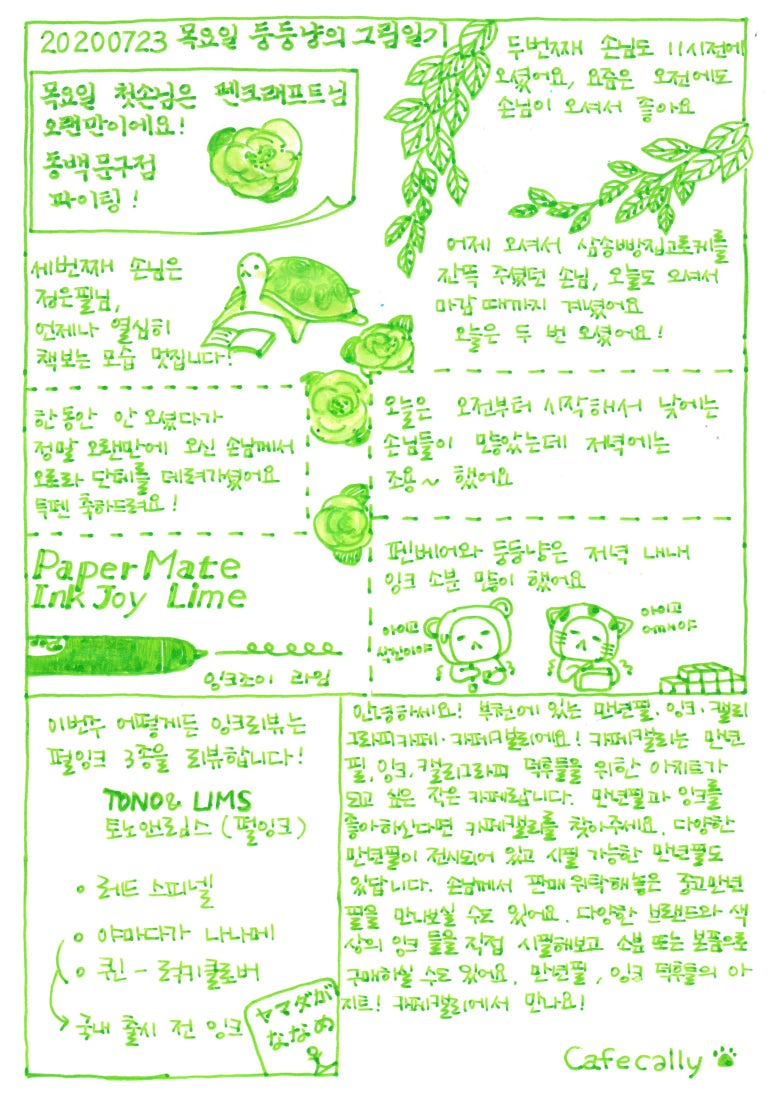 20200723 목요일 둥둥냥의 그림일기
목요일 첫손님은 펜크래프트님
오랜만이에요!
동백문구점
파이팅!
두번째 손님도 11시전에
오셨어요, 요즘은 오전에도
손님이 오셔서 좋아요
세번째 손님은
정은필님,
언제나 열심히
책보는 모습 멋집니다!
어제 오셔서 삼송빵집고로케를
잔뜩 주셨던 손님, 오늘도 오셔서
마감때까지 계셨어요
오늘은 두 번 오셨어요!
한동안 안 오셨다가
정말 오랜만에 오신 손님께서
오로라 단테를 데려가셨어요
득펜 축하드려요!
오늘은 오전부터 시작해서 낮에는
손님들이 많았는데 저녁에는
조용~ 했어요
Paper Mate
Ink Joy Lime
잉크조이 라임
펜베어와 둥둥냥은 저녁 내내
잉크 소분 많이 했어요
아이고
삭신이야
아이고
어깨야
이번주 어떻게든 잉크리뷰는
펄잉크 3종을 리뷰합니다!
TONO& LIMS
토노앤림스 (펄잉크)
• 레드 스피넬
• 야마다가 나나메
• 퀸 - 럭키클로버
국내 출시 전 잉크
ヤマダが
ななめ
안녕하세요! 부천에 있는 만년필·잉크·캘리
그라피카페·카페캘리에요! 카페캘리는 만년
필, 잉크, 캘리그라피 덕후들을 위한 아지트가
되고 싶은 작은 카페랍니다. 만년필과 잉크를
좋아하신다면 카페캘리를 찾아주세요. 다양한
만년필이 전시되어 있고 시필 가능한 만년필도
있답니다. 손님께서 판매위탁해놓은 중고만년
필을 만나보실 수도 있어요. 다양한 브랜드와 색
상의 잉크 들을 직접 시필해보고 소분 또는 본품으로
구매하실 수도 있어요. 만년필, 잉크 덕후들의 아
지트! 카페캘리에서 만나요!
Cafecally